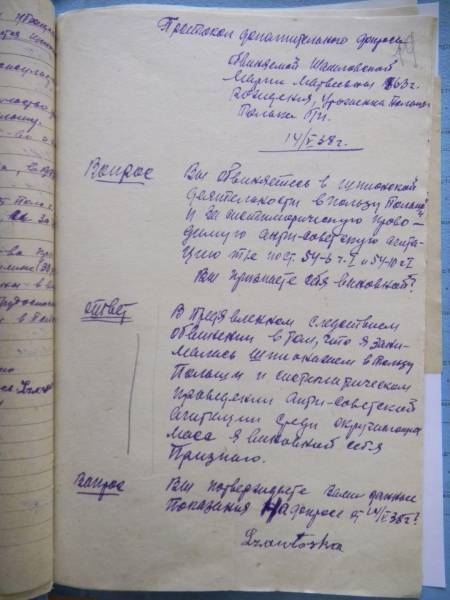 Протокол дополнительного допроса
обвиняемой Шатковской
Марии Матвеевны 1863г.
рождения, Уроженка Польши
14/V 38г.
Вопрос Вы обвиняетесь в шпионской
деятельности в пользу Польши
и за систиматическую прово-
димую анти-советскую агита-
цию т/е пост. 54-6 ч. I и 54-10 ч I
Вы признаете себя виновной?
Ответ В предявленном следствием
обвинении в том, что я зани-
малась шпионажем в пользу
Польши и систиматическом
проведении анти-советской
агитации среди окружающих
масс я виновной себя
Признаю.
Вопрос Вы потверждаете Вами данные
Показания На допросе от 14/V 38г?